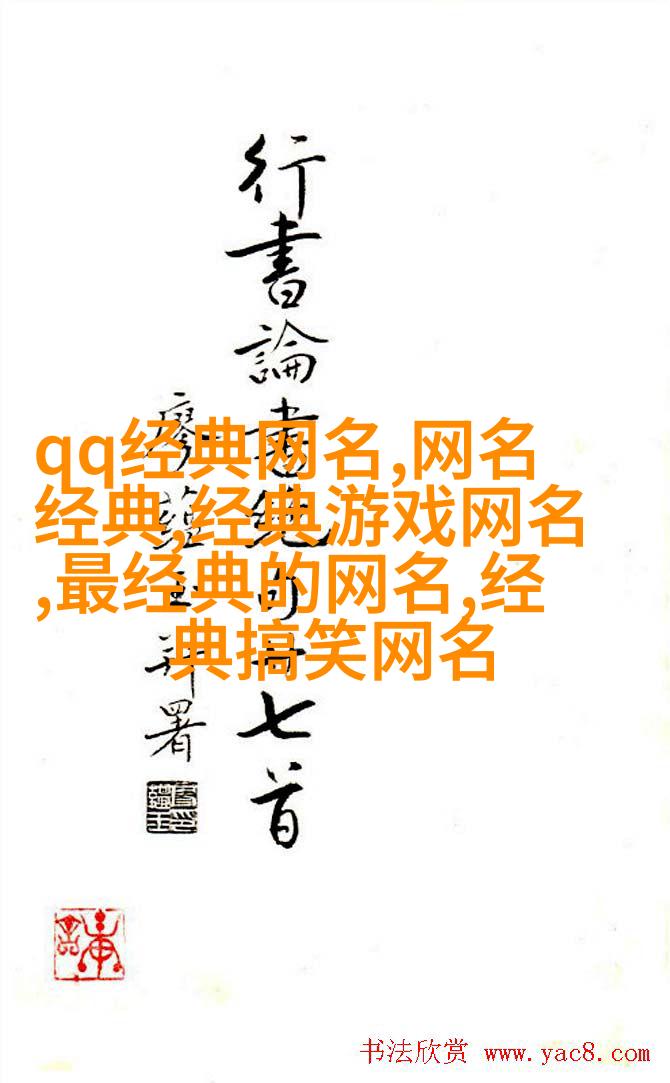 行書論書絕句廿七首
廖蘊玉署
qq经典网名,网名
经典,经典游戏网名
,最经典的网名,经
典搞笑网名
书法欣赏 www.yac8.com